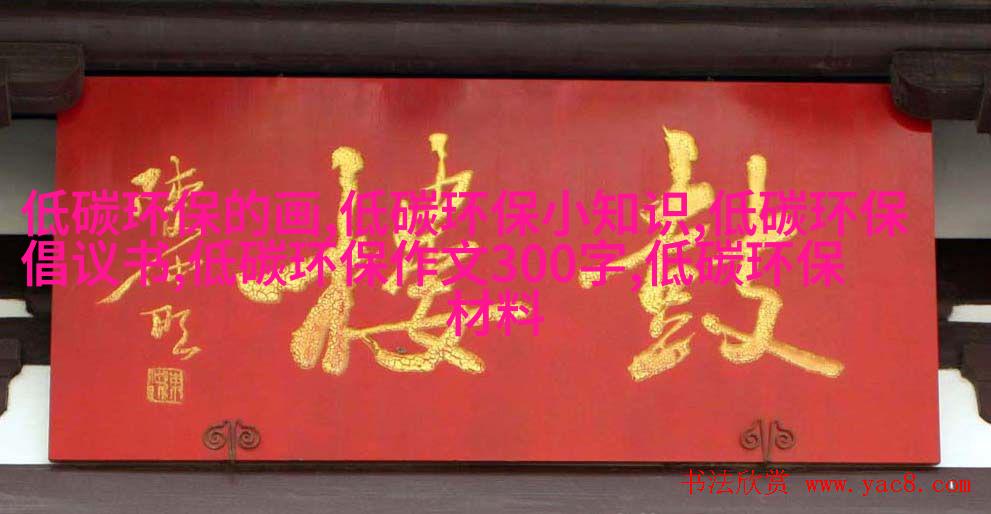 鼓楼
低碳环保的画,低碳环保小知识,低碳环保
倡议书,低碳环保作文300字,低碳环保
材料
书法欣赏 www.yac8.com